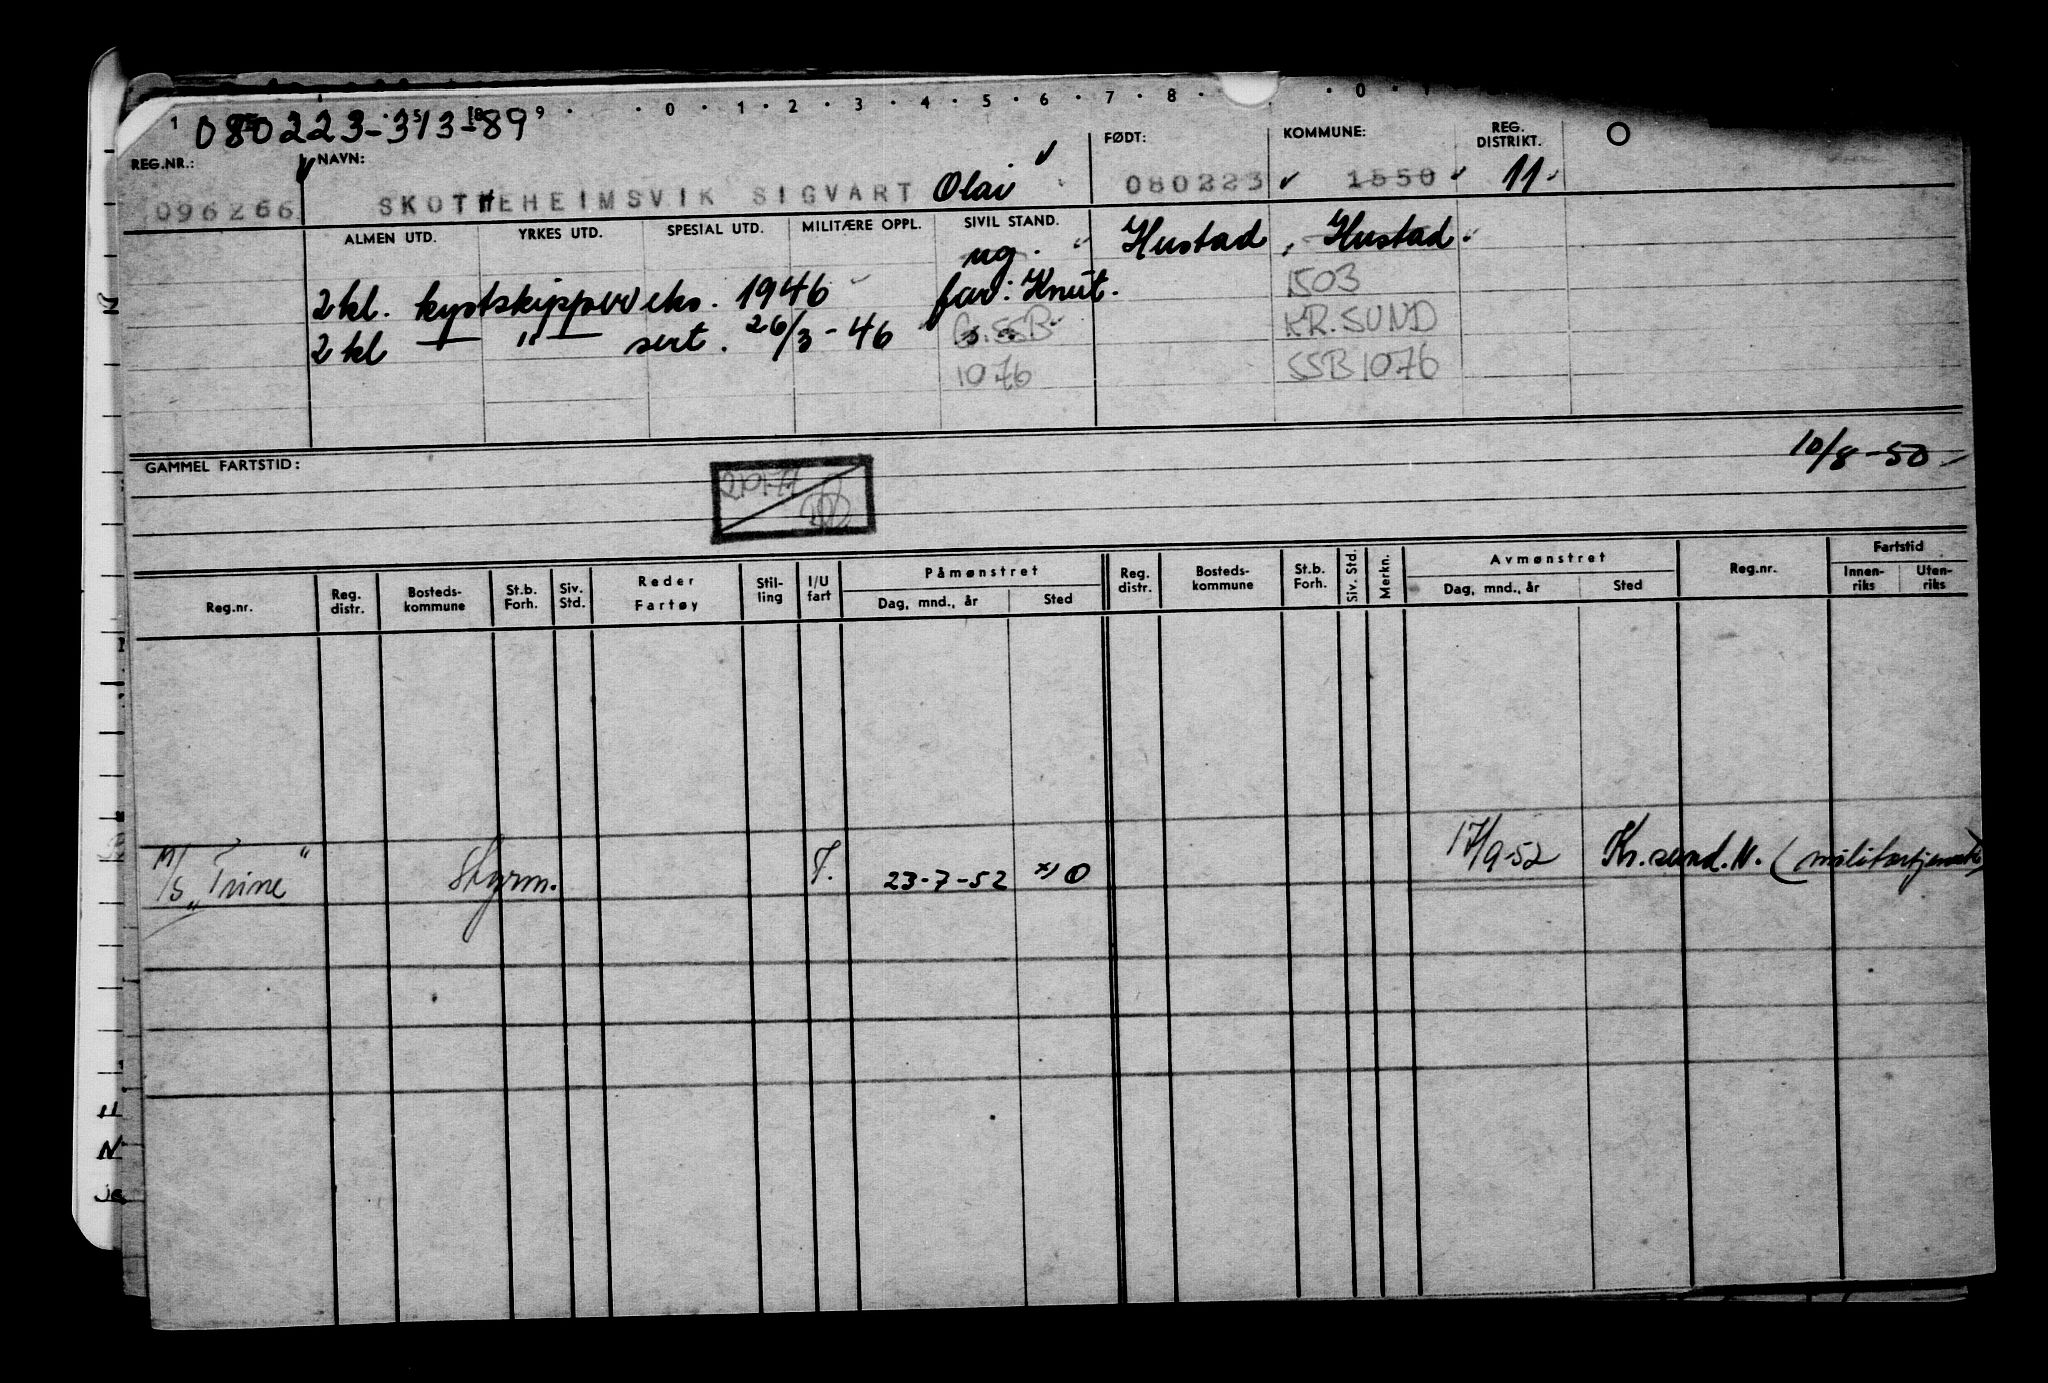 080223-313-89
REG.NR.: NAVN: FØDT: KOMMUNE: REG. DISTRIKT.
096266 SKOTHEHEIMSVIK SIGVART Olai 080223 1550 11
ALMEN UTD. YRKES UTD. SPESIAL UTD. MILITÆRE OPPL. SIVIL STAND.
ug. Hustad, Hustad.
2 kl. kystskippereks. 1946 far: Knut. 1503
2 kl — " — sert. 26/3-46 G. SSB KR. SUND
1076 SSB 1076
GAMMEL FARTSTID: 10/8-50
Reg.nr. Reg. distr. Bosteds-kommune St.b. Forh. Siv. Std. Reder Fartøy Stil-ling I/U fart Påmønstret Dag, mnd., år Sted Reg. distr. Bosteds-kommune St.b. Forh. Siv. Std. Merkn. Avmønstret Dag, mnd., år Sted Reg.nr. Fartstid Innen-riks Uten-riks
M/S "Trine" Styrm. F. 23-7-52 x) O 17/9-52 Kr.sund.N. (militærtjeneste)